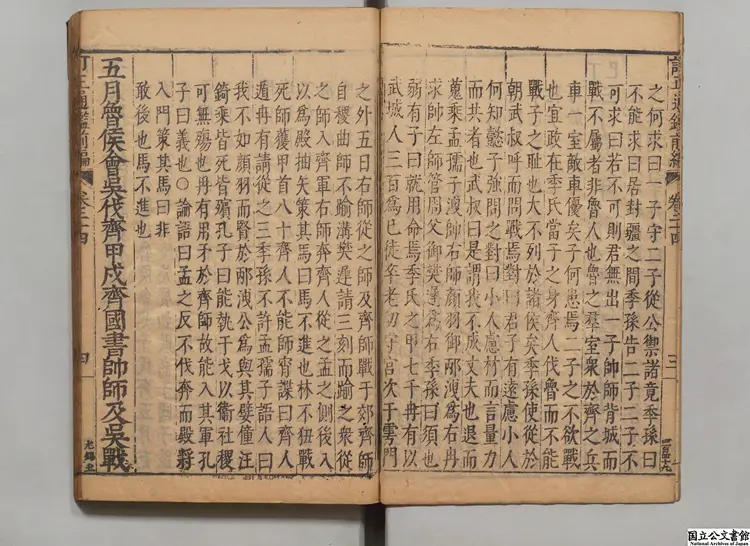 訂正通鑑前編 卷二十四 三
之何求曰一子守二子從公禦諸竟季孫曰
不能求曰居封疆之間季孫告二子二子不
可求曰若不可則君無出一子帥師背城而
戰不屬者非魯人也魯之羣室衆於齊之兵
車一室敵車優矣子何患焉二子之不欲戰
也宜政在季氏當子之身齊人伐魯而不能
戰子之耻也大不列於諸侯矣季孫使從於
朝武叔呼而問戰焉對曰君子有遠慮小人
何知懿子強問之對曰小人慮材而言量力
而共者也武叔曰是謂我不成丈夫也退而
蒐乘孟孺子洩帥右師顏羽御邴洩爲右冉
求帥左師管周父御樊遲爲右季孫曰須也
弱有子曰就用命焉季氏之甲七千冉有以
武城人三百爲己徒卒老幼守宮次于雩門
之外五日右師從之師及齊師戰于郊齊師
自稷曲師不踰溝樊遲請三刻而踰之衆從
之師入齊軍右師奔齊人從之孟之側後入
以爲殿抽矢策其馬曰馬不進也林不狃戰
死師獲甲首八十齊人不能師宵諜曰齊人
遁冉有請從之三季孫不許孟孺子語人曰
我不如顏羽而賢於邴洩公爲與其嬖僮汪
錡乘皆死皆殯孔子曰能執干戈以衞社稷
可無殤也冉有用矛於齊師故能入其軍孔
子曰義也○論語曰孟之反不伐奔而殿將
入門策其馬曰非
敢後也馬不進也
五月魯侯會吳伐齊甲戌齊國書帥師及吳戰
訂正通鑑前編 卷二十四 四
国立公文書館
National Archives of Japan